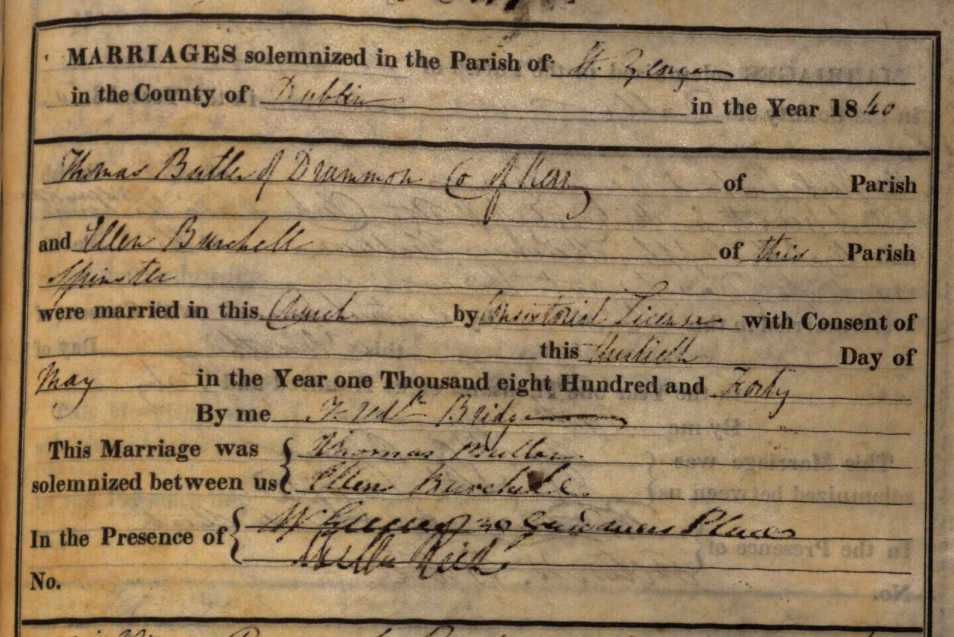 MARRIAGES solemnized in the Parish of St. George
in the County of Dublin in the Year 1840
Thomas Butler of Drummon Co of of Parish
and Ellen Burchell of this Parish
Spinster
were married in this Church by Consistorial License with Consent of
this thirtieth Day of
May in the Year one Thousand eight Hundred and Forty
By me Fredk Bridge
This Marriage was Thomas Butler
solemnized between us Ellen Burchell
In the Presence of 30 Place
No.